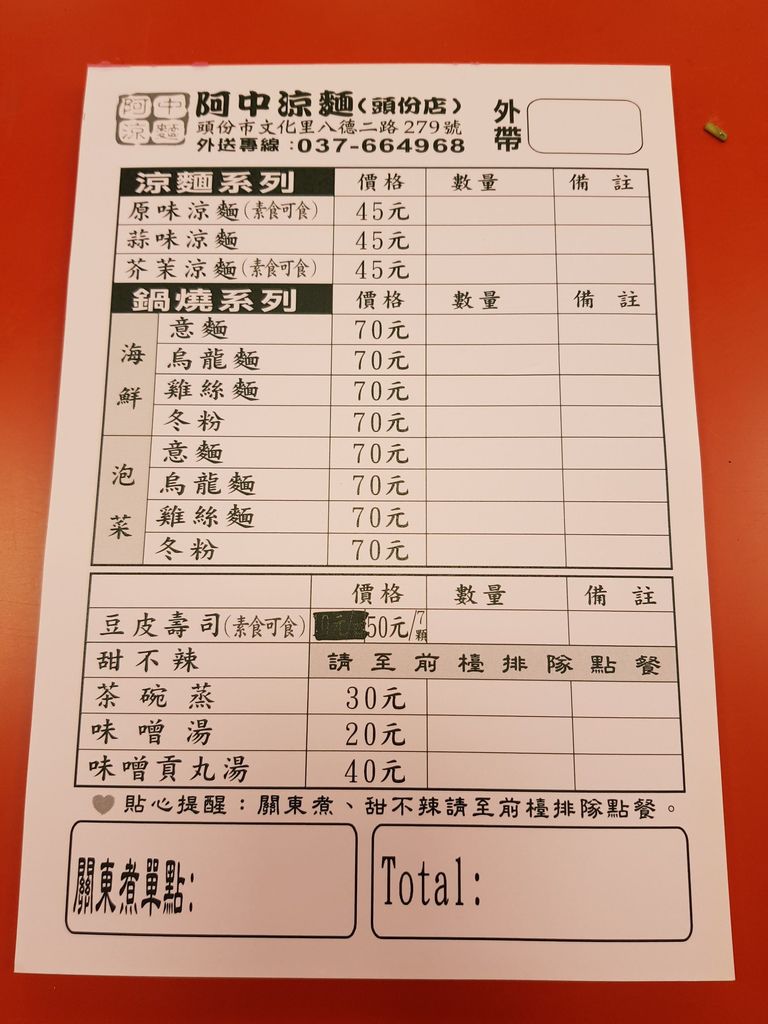 阿中涼麵
阿中涼麵(頭份店)
頭份市文化里八德二路279號
外送專線:037-664968
外帶
涼麵系列 價格 數量 備註
原味涼麵(素食可食) 45元
蒜味涼麵 45元
芥茉涼麵(素食可食) 45元
鍋燒系列 價格 數量 備註
海鮮
意麵 70元
烏龍麵 70元
雞絲麵 70元
冬粉 70元
泡菜
意麵 70元
烏龍麵 70元
雞絲麵 70元
冬粉 70元
價格 數量 備註
豆皮壽司(素食可食) 50元/7顆
甜不辣 請至前檯排隊點餐
茶碗蒸 30元
味噌湯 20元
味噌貢丸湯 40元
貼心提醒:關東煮、甜不辣請至前檯排隊點餐。
關東煮單點:
Total: